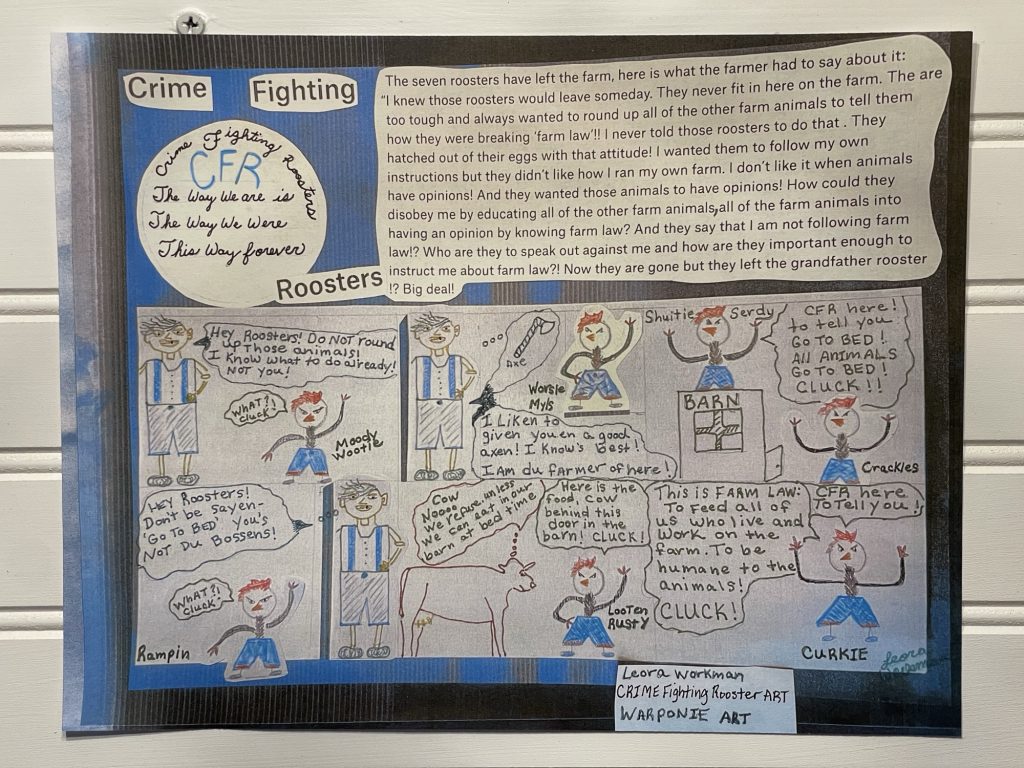 Crime Fighting
Crime Fighting Roosters
CFR
The Way We are is
The Way We Were
This Way forever
Roosters
The seven roosters have left the farm, here is what the farmer had to say about it:
“I knew those roosters would leave someday. They never fit in here on the farm. The are
too tough and always wanted to round up all of the other farm animals to tell them
how they were breaking ‘farm law’!! I never told those roosters to do that . They
hatched out of their eggs with that attitude! I wanted them to follow my own
instructions but they didn’t like how I ran my own farm. I don’t like it when animals
have opinions! And they wanted those animals to have opinions! How could they
disobey me by educating all of the other farm animals,all of the farm animals into
having an opinion by knowing farm law? And they say that I am not following farm
law!? Who are they to speak out against me and how are they important enough to
instruct me about farm law?! Now they are gone but they left the grandfather rooster
!? Big deal!
Hey Roosters! Do Not round
up Those animals!
I Know what to do already!
NOT you!
WHAT?!
Cluck!
Moody
Wootie
AXE
Worsie
Myls
I Liken to
given you en a good
axen! I Know's best!
I Am du farmer of here!
Shuitie Serdy
CFR here!
to tell you
GO TO BED!
All ANIMALS
GO TO BED!
CLUCK!!
BARN
Crackles
HEY Roosters!
Don't be sayen-
'Go To BED' You's
Not Du Bossens!
WHAT?!
CLUCK!
Rampin
Cow
Nooo
We refuse unless
we can eat in our
barn at bed time
Here is the
food, cow
behind this
door in the
barn! CLUCK!
Looten
Rusty
This is FARM LAW:
To Feed all of
us who live and
work on the
farm. To be
humane to the
animals!
CLUCK!
CFR here
To Tell you!
CURKIE
Leora
Workman
Leora Workman
CRIME Fighting Rooster ART
WARPONIE ART